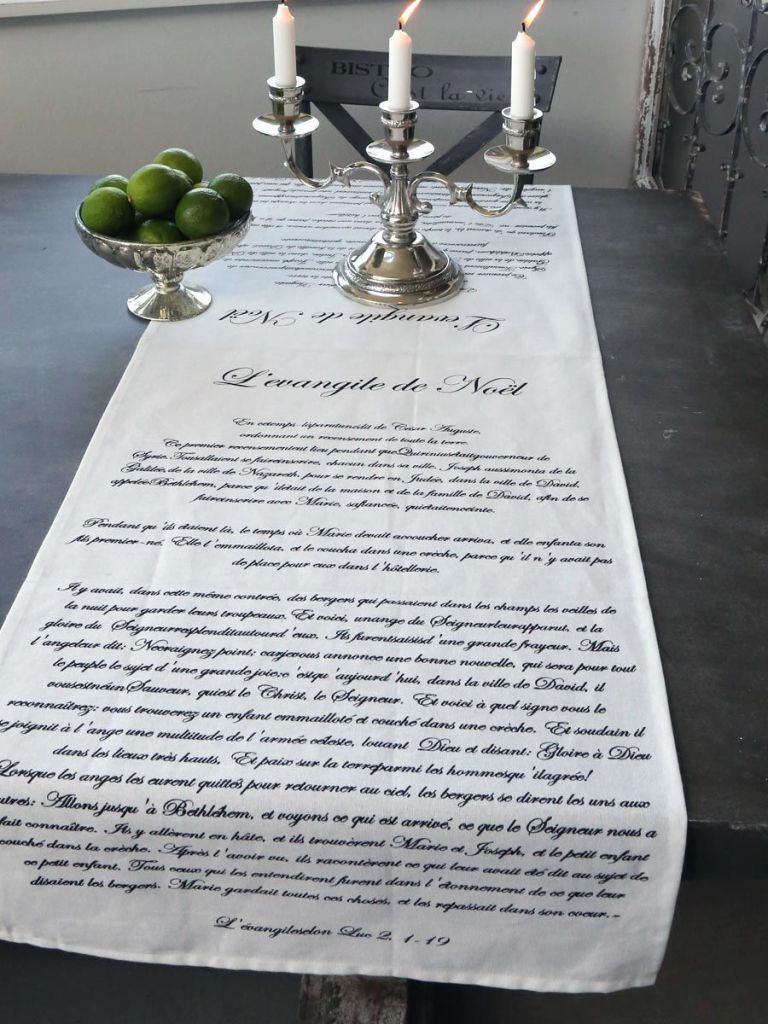 BISTRO
C'est la vie
L'evangile de Noël
L'evangile de Noël
En cetemps-làparutunédit de César Auguste,
ordonnant un recensement de toute la terre.
Ce premier recensementeut lieu pendant queQuiriniusétaitgouverneur de
Syrie. Tousallaient se faireinscrire, chacun dans sa ville. Joseph aussimonta de la
Galilée, de la ville de Nazareth, pour se rendre en Judée, dans la ville de David,
appelée Bethléhem, parce qu'ilétait de la maison et de la famille de David, afin de se
faireinscrire avec Marie, safiancée, quiétaitenceinte.
Pendant qu'ils étaient là, le temps où Marie devait accoucher arriva, et elle enfanta son
fils premier-né. Elle l'emmaillota, et le coucha dans une crèche, parce qu'il n'y avait pas
de place pour eux dans l'hôtellerie.
Il y avait, dans cette même contrée, des bergers qui passaient dans les champs les veilles de
la nuit pour garder leurs troupeaux. Et voici, unange du Seigneurleurapparut, et la
gloire du Seigneurresplenditautourd'eux. Ils furentsaisisd'une grande frayeur. Mais
l'angeleur dit: Necraignez point; carjevous annonce une bonne nouvelle, qui sera pour tout
le peuple le sujet d'une grande joie:c'estqu'aujourd'hui, dans la ville de David, il
vousestnéunSauveur, quiest le Christ, le Seigneur. Et voici à quel signe vous le
reconnaîtrez: vous trouverez un enfant emmailloté et couché dans une crèche. Et soudain il
se joignit à l'ange une multitude de l'armée céleste, louant Dieu et disant: Gloire à Dieu
dans les lieux très hauts, Et paix sur la terreparmi les hommesqu'ilagrée!
Lorsque les anges les eurent quittés pour retourner au ciel, les bergers se dirent les uns aux
utres: Allons jusqu'à Bethléhem, et voyons ce qui est arrivé, ce que le Seigneur nous a
fait connaître. Ils y allèrent en hâte, et ils trouvèrent Marie et Joseph, et le petit enfant
couché dans la crèche. Après l'avoir vu, ils racontèrent ce qui leur avait été dit au sujet de
ce petit enfant. Tous ceux qui les entendirent furent dans l'étonnement de ce que leur
disaient les bergers. Marie gardait toutes ces choses, et les repassait dans son coeur.-
L'évangileselon Luc 2, 1-19